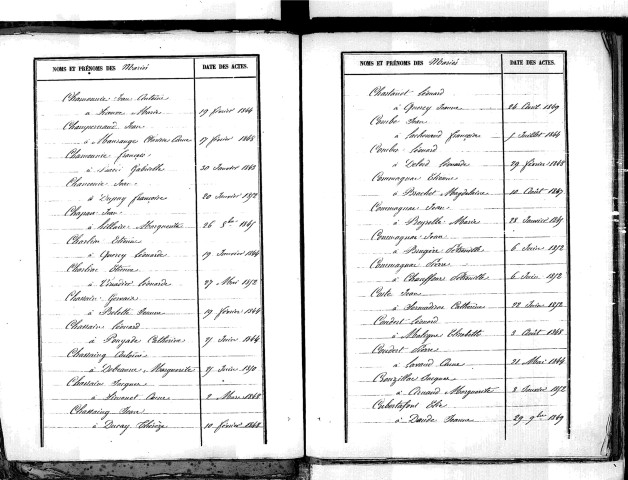 NOMS ET PRÉNOMS DES Mariés DATE DES ACTES.
Chamournie Jean Antoine
à Marie 19 février 1864
Champernaud Jean
à Mansange Anne 17 février 1865
Chamournie françois
à Gabrielle 30 Janvier 1865
Jean
à Dupuy françoise 20 Janvier 1872
Chapau Jean
à hillaire Marguerite 26 1865
Charlin Etienne
à Quercy Léonarde 19 Janvier 1864
Charlin Etienne
à Léonarde 27 Mai 1872
Chassain Gervais
à Jeanne 19 février 1864
Chassain Léonard
à Ponyade Catherine 21 Juin 1864
Chassaing Antoine
à Marguerite 21 Juin 1870
Chassain Jacques
à Simonet Anne 2 Mars 1868
Chassaing Jean
à Duray Thérèze 10 février 1868
NOMS ET PRÉNOMS DES Mariés DATE DES ACTES.
Chastanet Léonard
à Quercy Jeanne 24 Avril 1869
Combe Jean
à françoise Juillet 1864
Combe Léonard
à Debord Léonarde 29 février 1868
Commagnac Etienne
à Brachet Magdeleine 10 Août 1867
Commagnac Jean
à Peyrelle Marie 28 Janvier 1867
Commagnac Jean
à Brugère 6 Juin 1872
Commagnac Pierre
à Chauffour 6 Juin 1872
Coste Jean
à Catherine 22 Juin 1872
Coudert Léonard
à Elisabeth 3 Août 1868
Coudert Pierre
à Lavaud Anne 31 Mai 1864
Crouzillac Jacques
à Arnaud Marguerite 8 Janvier 1872
Cubertafont Elie
à Daude Jeanne 29 9bre 1869